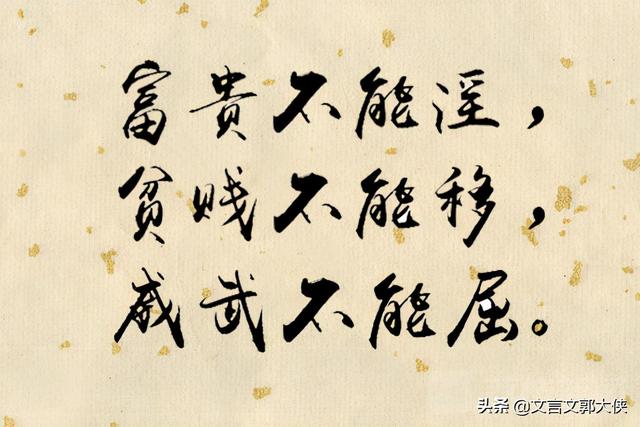 富貴不能淫，
贫贱不能移，
威武不能屈。
头条 @文言文郭大侠